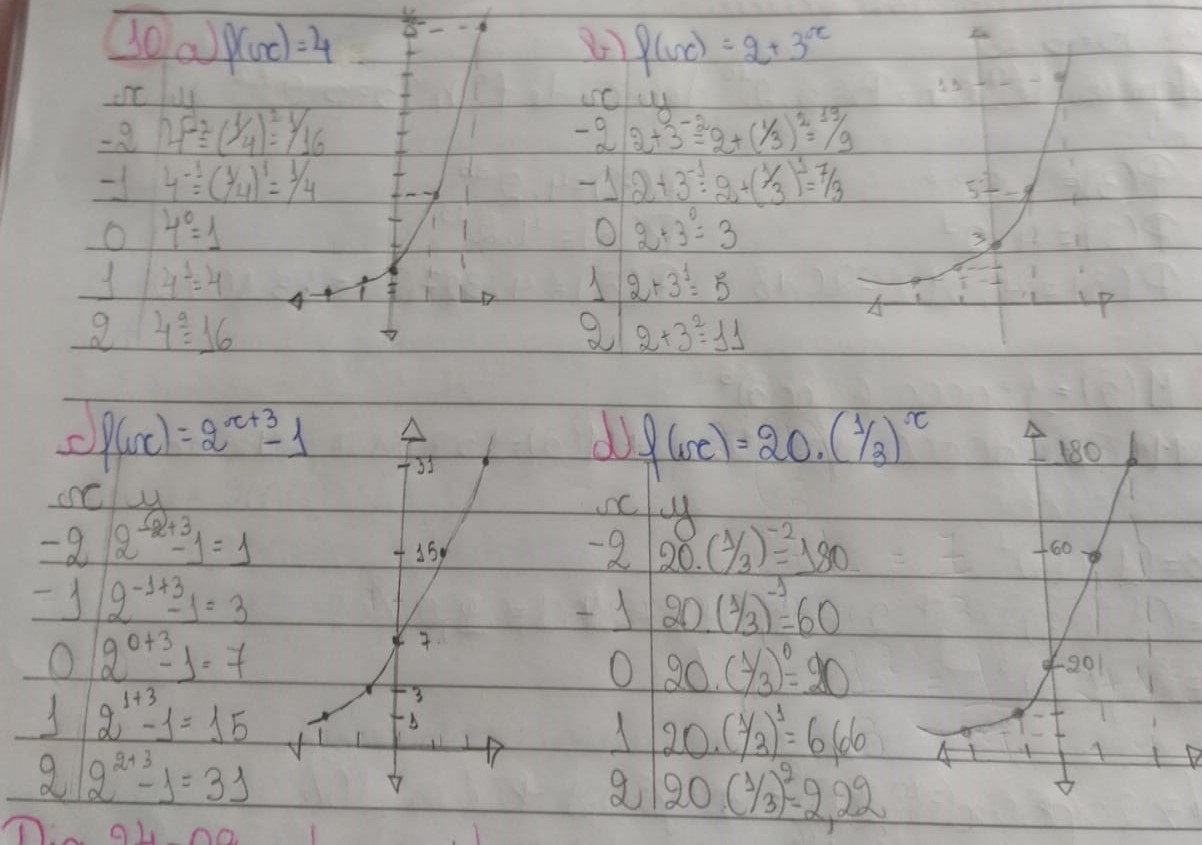 10 a) f(x)=4
x y
-2 4⁻²=(1/4)²=1/16
-1 4⁻¹=(1/4)¹=1/4
0 4⁰=1
1 4¹=4
2 4²=16
b) f(x) = 2+3ˣ
x y
-2 2+3⁻²=2+(1/3)²=19/9
-1 2+3⁻¹=2+(1/3)¹=7/3
0 2+3⁰=3
1 2+3¹=5
2 2+3²=11
11
5
3
c) f(x)=2ˣ⁺³-1
x y
-2 2⁻²⁺³-1=1
-1 2⁻¹⁺³-1=3
0 2⁰⁺³-1=7
1 2¹⁺³-1=15
2 2²⁺³-1=31
31
15
7
3
1
d) f(x)=20.(1/3)ˣ
x y
-2 20.(1/3)⁻²=180
-1 20.(1/3)⁻¹=60
0 20.(1/3)⁰=20
1 20.(1/3)¹=6,66
2 20.(1/3)²=2,22
180
60
20